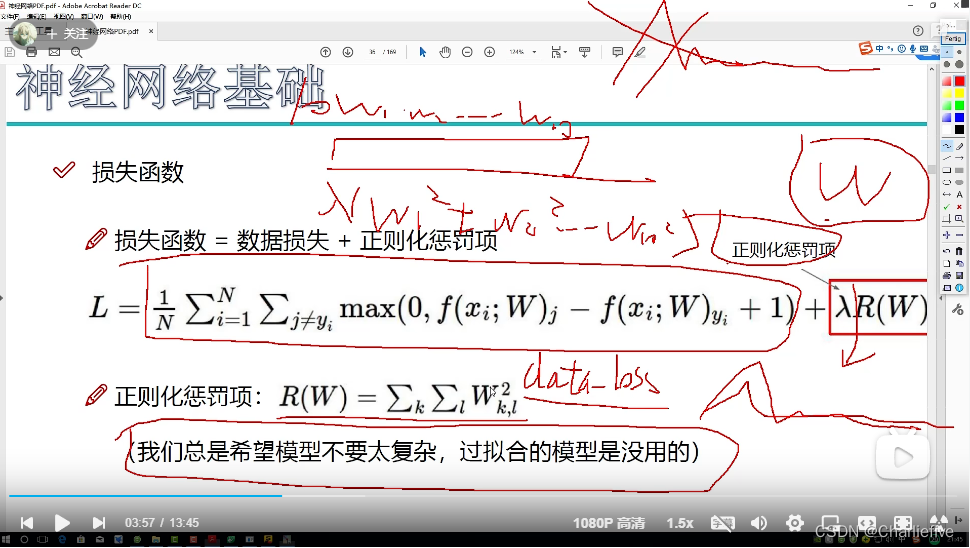 神经网络PDF.pdf - Adobe Acrobat Reader DC
文件(F) 编辑(E) 视图(V) 窗口(W) 帮助(H)
+ 关注
神经网络PDF.pdf ×
36 / 169
124%
Fertig
神经网络基础
W₁ w₂ ---- W₁₀
损失函数
λ W₁² + W₂² --- W₁₀²
W
损失函数 = 数据损失 + 正则化惩罚项
正则化惩罚项
L = \frac{1}{N} ∑_{i=1}^{N} ∑_{j≠y_i} max(0, f(x_i; W)_j − f(x_i; W)_{y_i} + 1) + λR(W)
data_loss
正则化惩罚项：R(W) = ∑_k ∑_l W_{k,l}^2
（我们总是希望模型不要太复杂，过拟合的模型是没用的）
03:57 / 13:45
1080P 高清
1.5x
CSDN @Charliefive
21:45